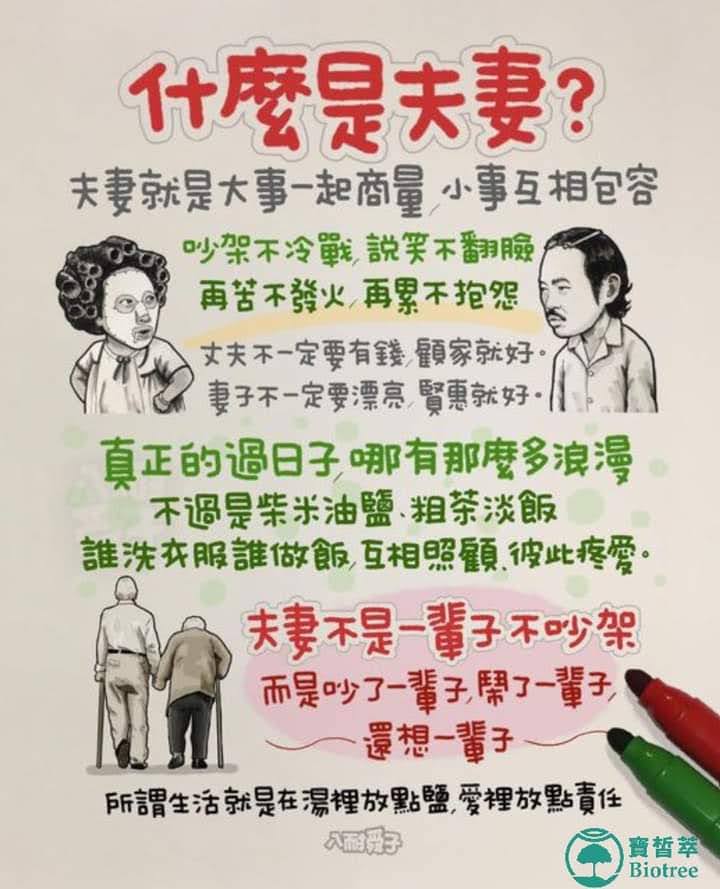 什麼是夫妻?
夫妻就是大事一起商量,小事互相包容
吵架不冷戰,說笑不翻臉
再苦不發火,再累不抱怨
丈夫不一定要有錢,顧家就好。
妻子不一定要漂亮,賢惠就好。
真正的過日子,哪有那麼多浪漫
不過是柴米油鹽、粗茶淡飯
誰洗衣服誰做飯,互相照顧、彼此疼愛。
夫妻不是一輩子不吵架
而是吵了一輩子,鬧了一輩子,
還想一輩子
所謂生活就是在湯裡放點鹽,愛裡放點責任
八耐舜子
寶晳萃
Biotree